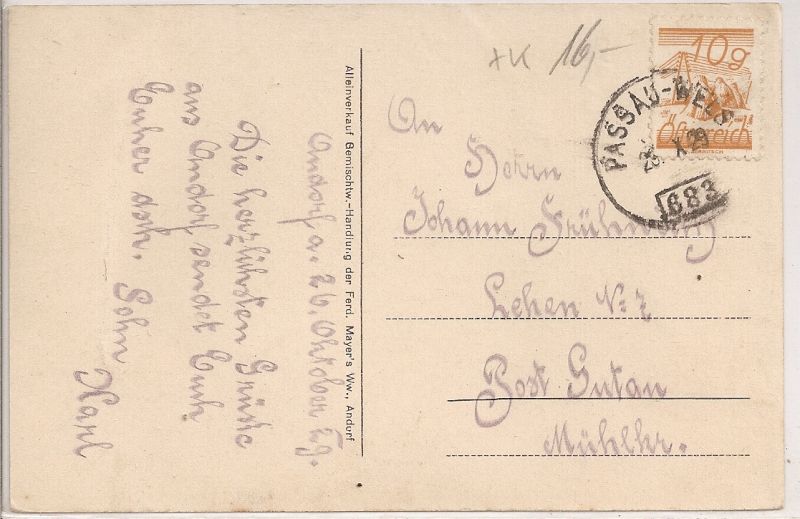 Andorf a. 26. Oktober 29.
Die herzlichsten Grüße
aus Andorf sendet Euch
Euher dch. Sohn
Karl
Alleinverkauf Gemischtw.-Handlung der Ferd. Mayer's Ww., Andorf
16,-
10g
Österreich
PASSAU-WELS
26. X 29
683
An
Herrn
Johann
Lehen No 7
Post Gutau
Mühlkr.